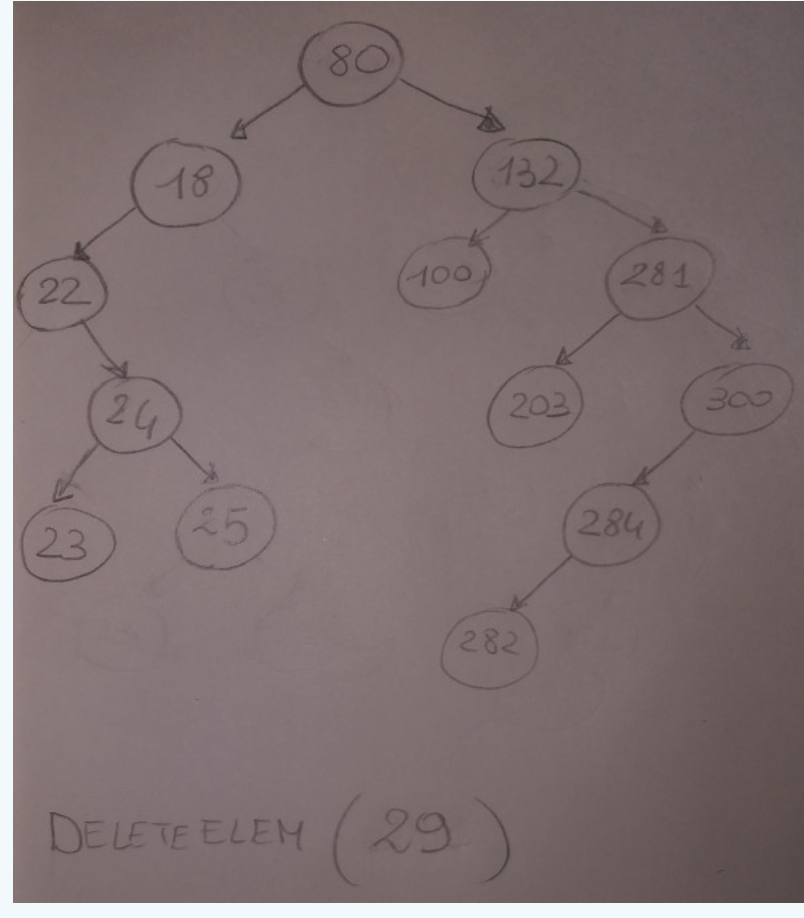 80
18 132
22 100 281
24 203 300
23 25 284
282
DELETE ELEM (29)